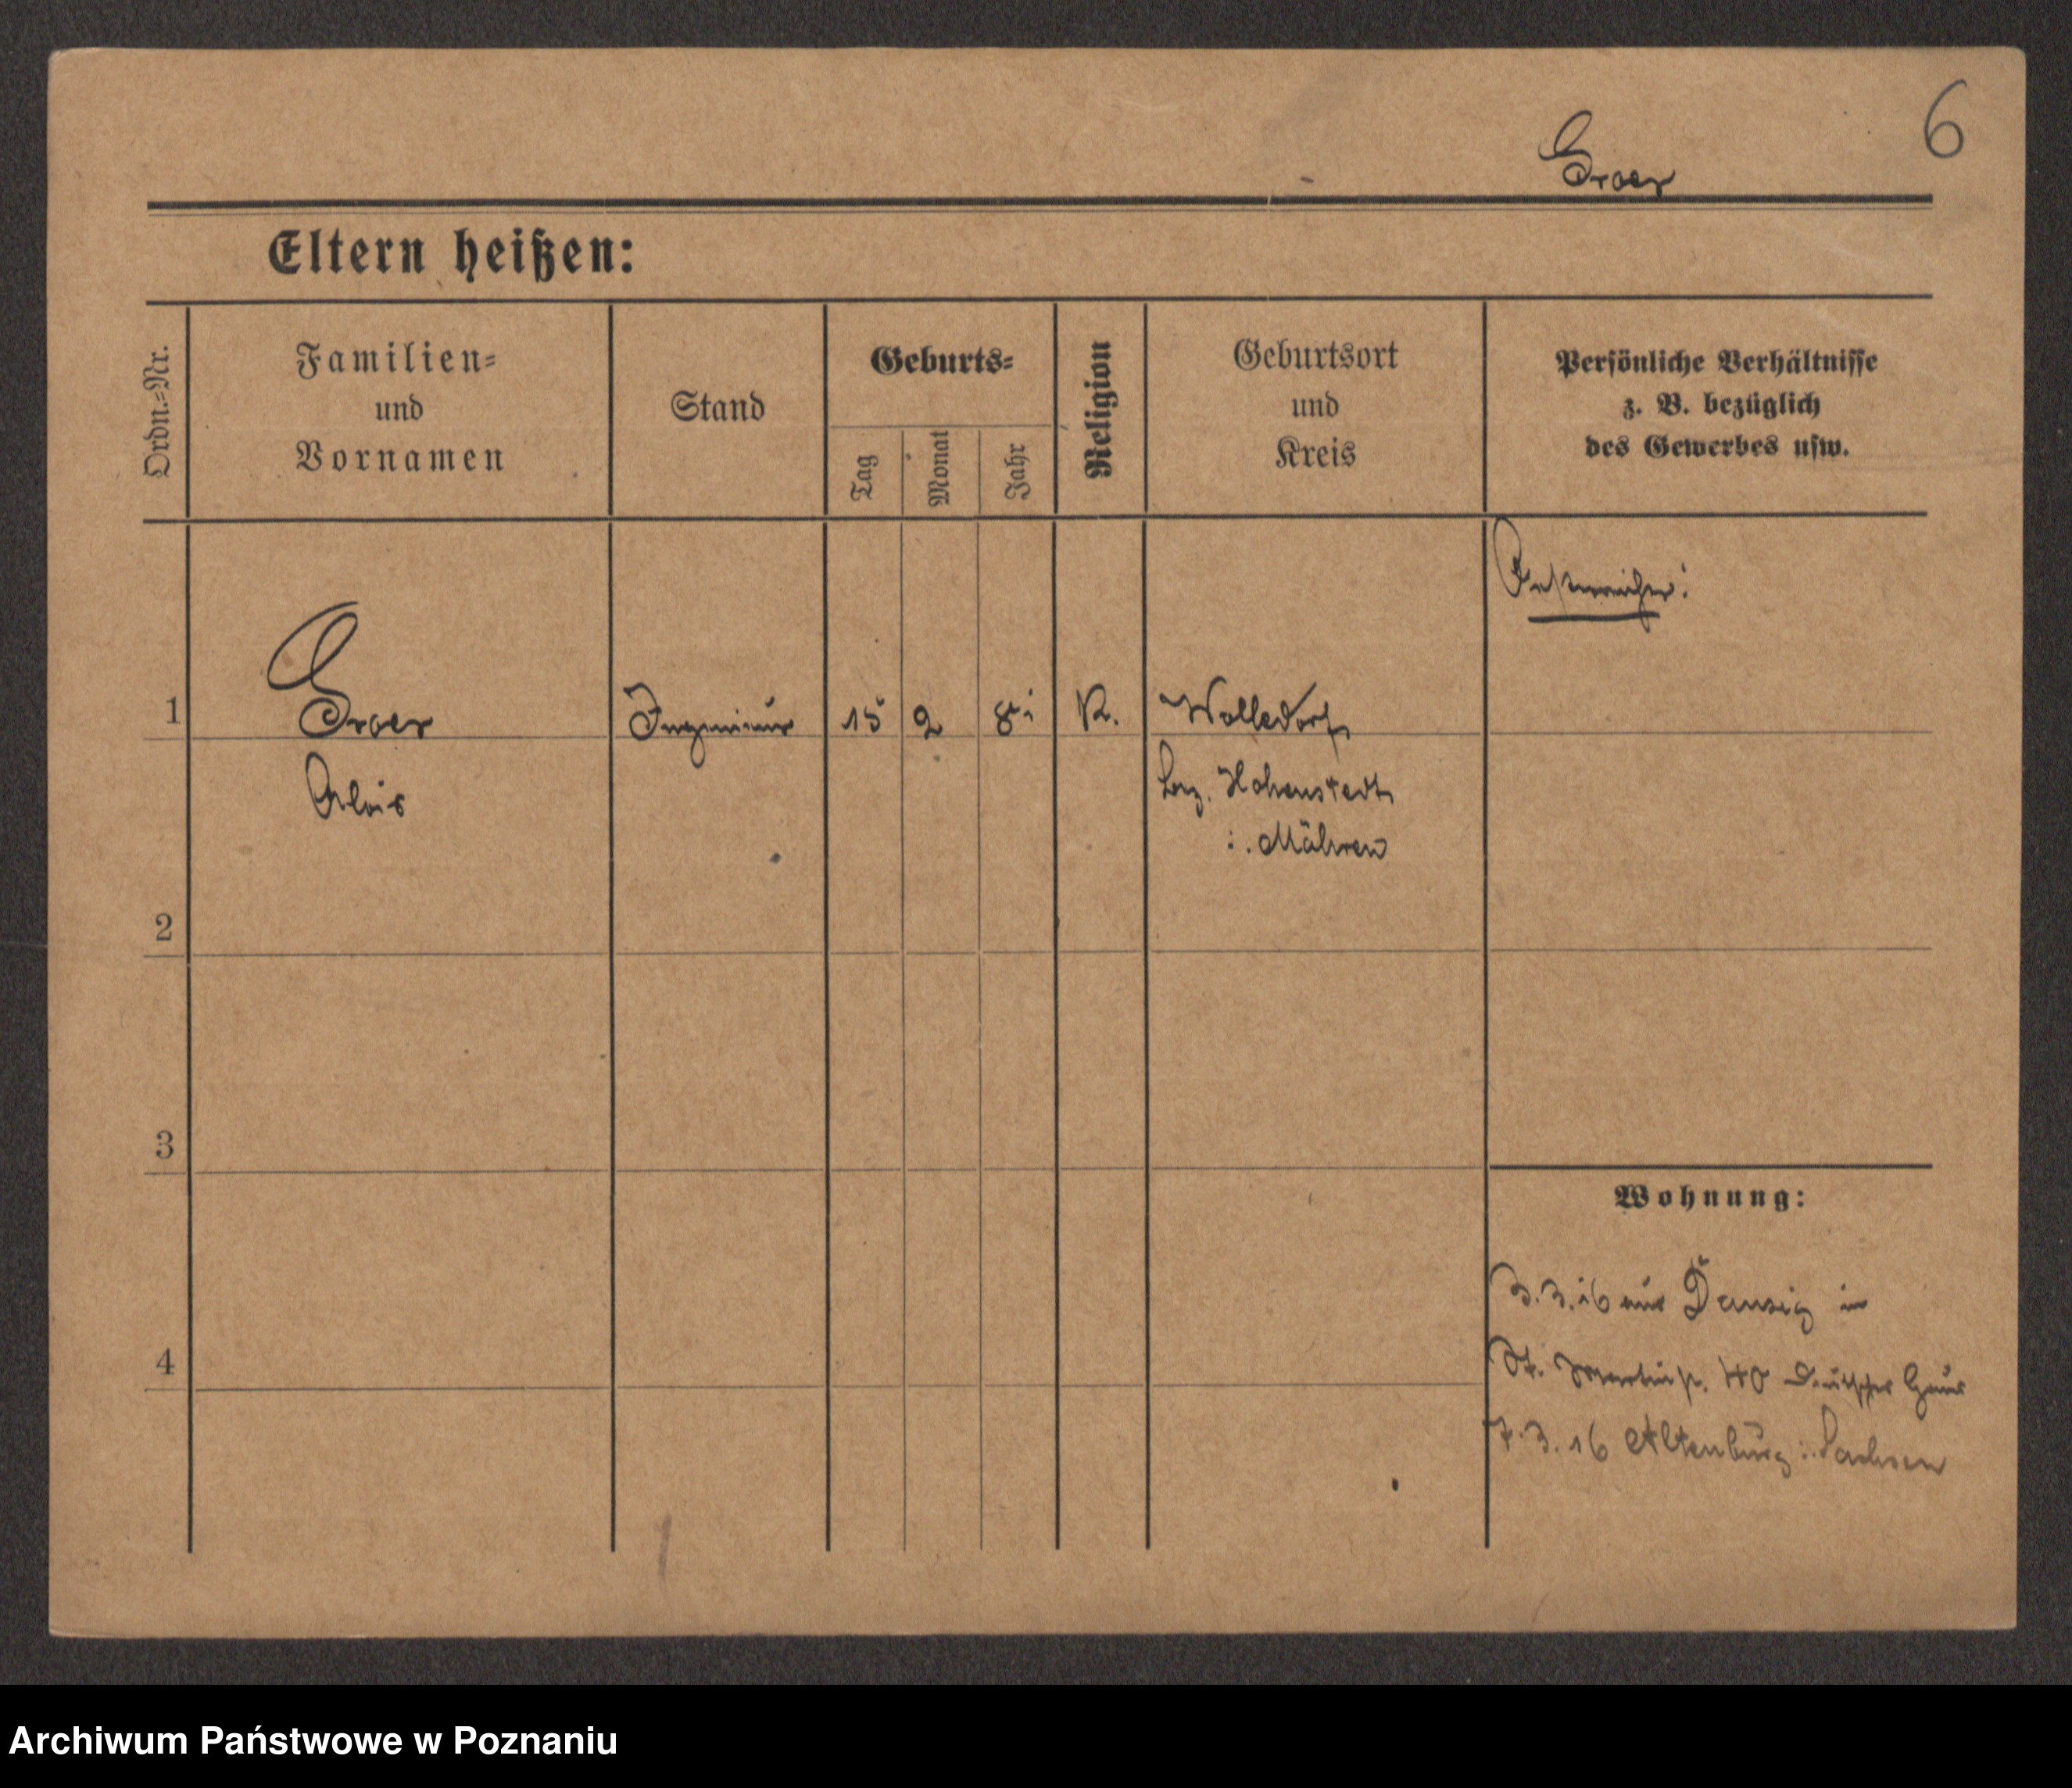 6
Groer
Eltern heißen:
Ordn.-Nr.
Familien-
und
Vornamen
Stand
Geburts-
Tag
Monat
Jahr
Religion
Geburtsort
und
Kreis
Persönliche Verhältnisse
z. B. bezüglich
des Gewerbes usw.
Oesterreicher!
1 Groer Ingenieur 15 2 81 K. Wolledorf
Alois Bez. Hohenstadt
i. Mähren
2
3
Wohnung:
3.3.16 aus Danzig in
4
St. Martinstr. 40 Deutsches Haus
7.3.16 Altenburg i. Sachsen
Archiwum Państwowe w Poznaniu